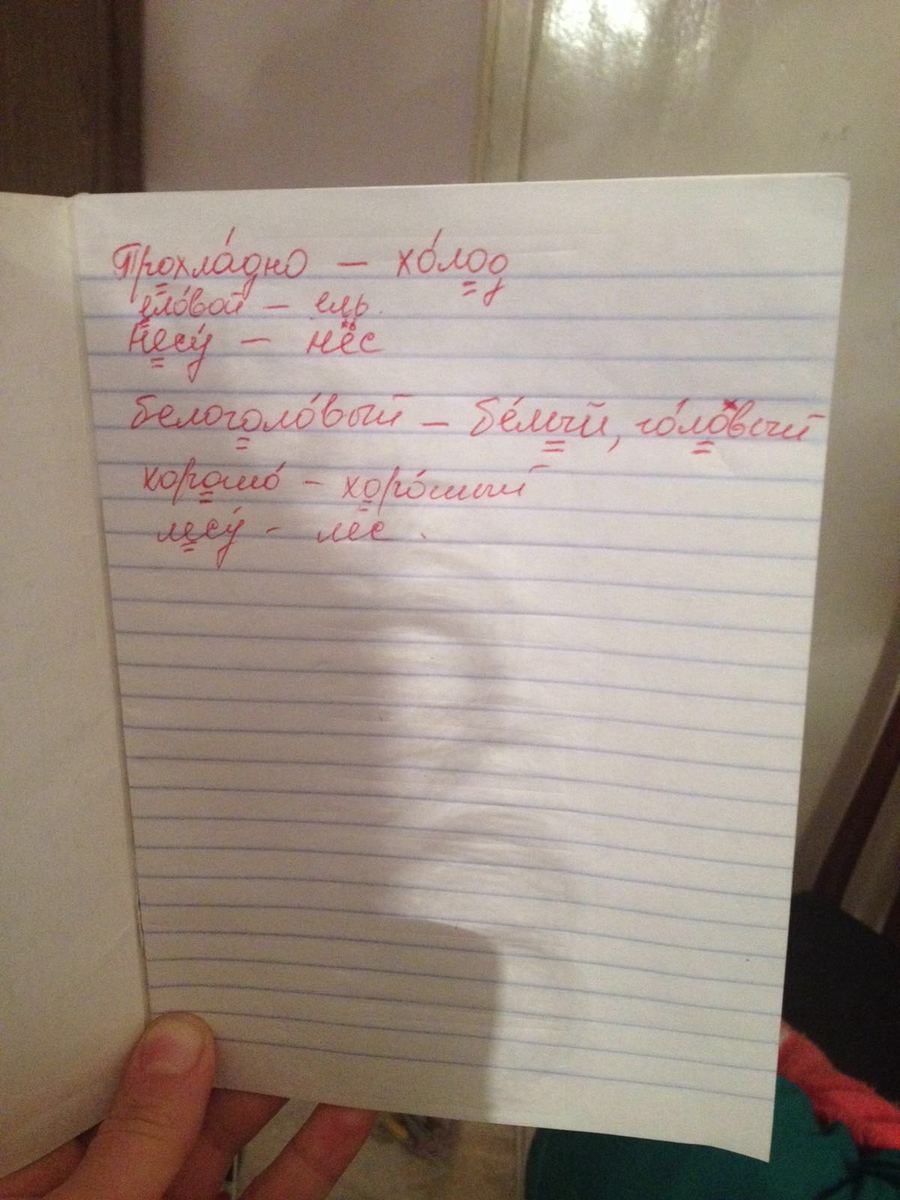 Прохла́дно – хо́лод
ело́вой – ель.
Несу́ – нёс
белоголо́вый – бе́лый, го́ловый
хорошо́ – хоро́ший
лесу́ - лес.